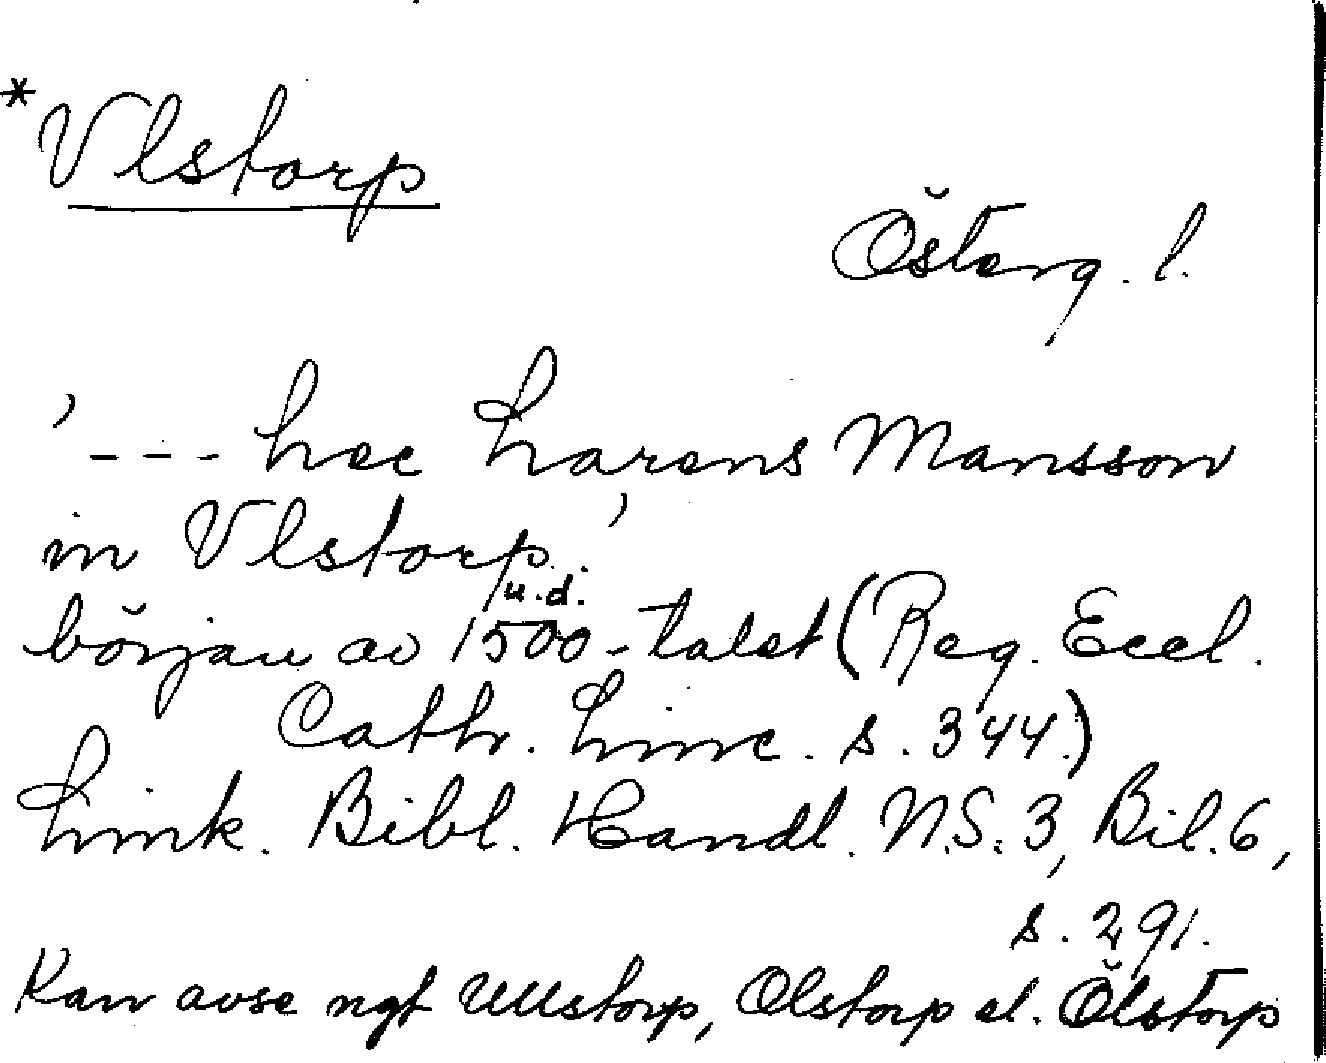 *Vlstorp
Österg. l.
'--- hec Larens Mansson
in Vlstorp.'
u.d.
början av 1500-talet (Reg. Eccl.
Cath. Linc. s. 344.)
Link. Bibl. Handl. N.S. 3, Bil. 6,
s. 291.
Kan avse ngt Ullstorp, Olstorp el. Ölstorp